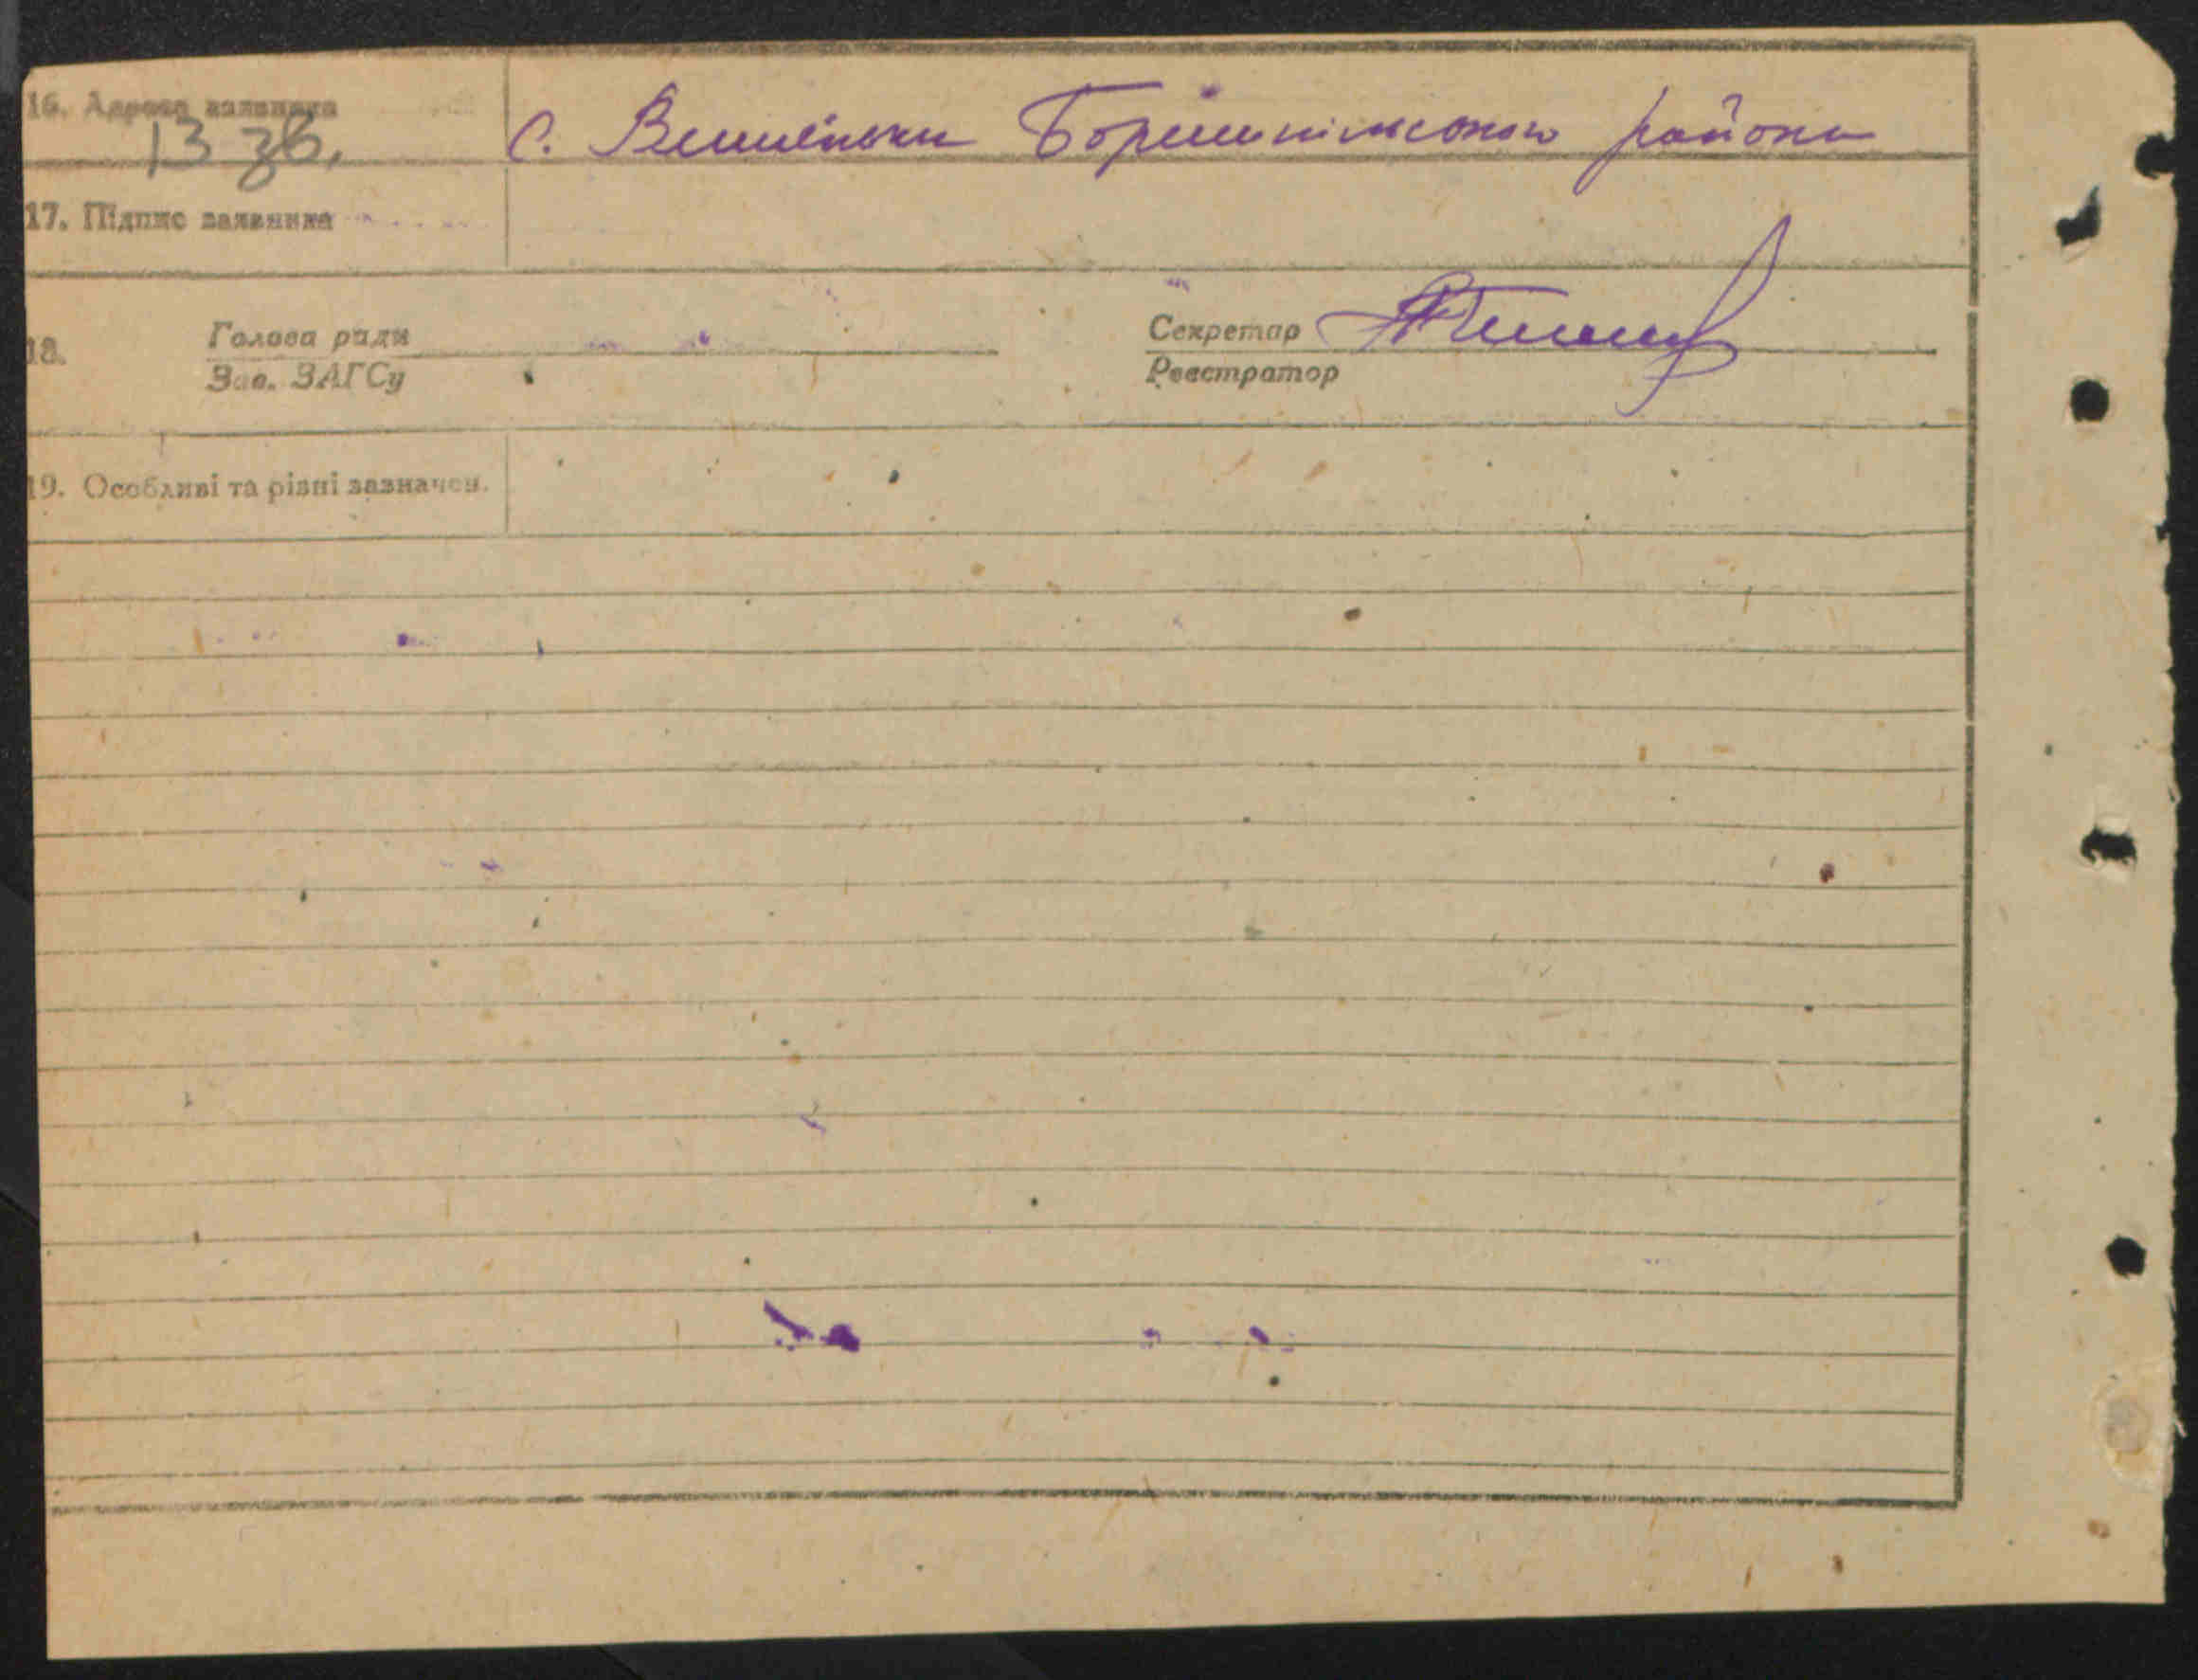 16. Адреса заявника
13 зв.
с. Вишеньки Бориспільського району
17. Підпис заявника
18. Голова ради
Зав. ЗАГСу
Секретар
Реєстратор
19. Особливі та різні зазначен.